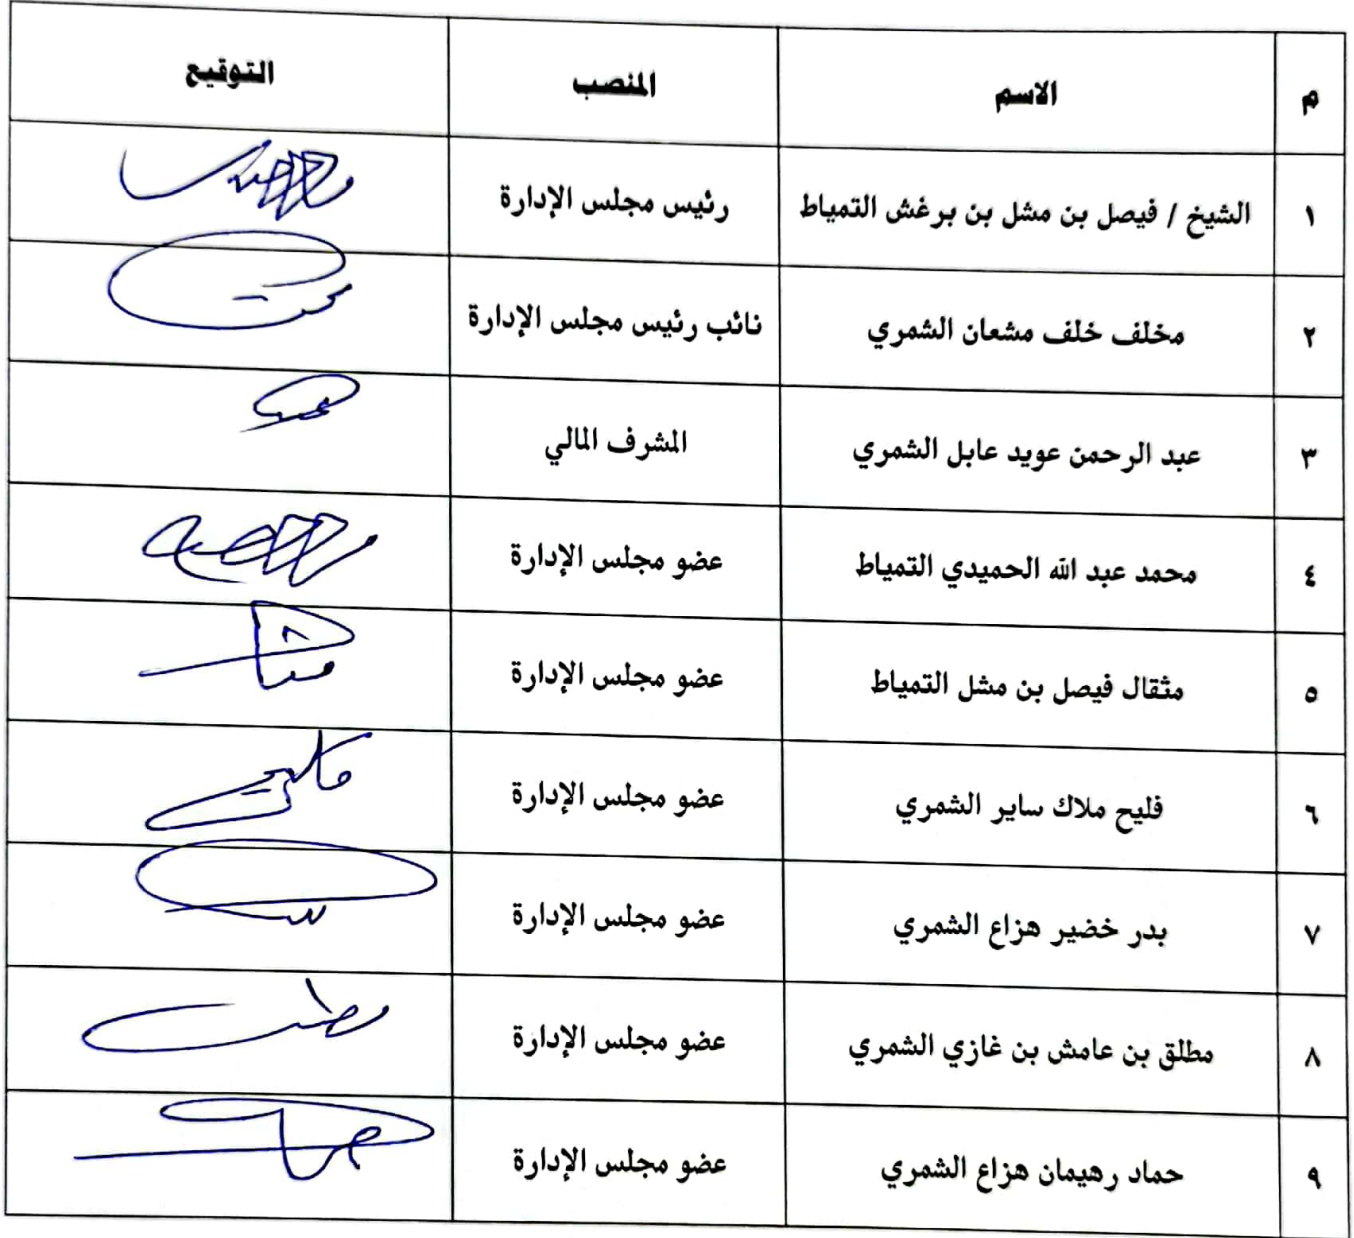 م الاسم المنصب التوقيع
١ الشيخ / فيصل بن مشل بن برغش التمياط رئيس مجلس الإدارة
٢ مخلف خلف مشعان الشمري نائب رئيس مجلس الإدارة
٣ عبد الرحمن عويد عابل الشمري المشرف المالي
٤ محمد عبد الله الحميدي التمياط عضو مجلس الإدارة
٥ مثقال فيصل بن مشل التمياط عضو مجلس الإدارة
٦ فليح ملاك ساير الشمري عضو مجلس الإدارة
٧ بدر خضير هزاع الشمري عضو مجلس الإدارة
٨ مطلق بن عامش بن غازي الشمري عضو مجلس الإدارة
٩ حماد رهيمان هزاع الشمري عضو مجلس الإدارة